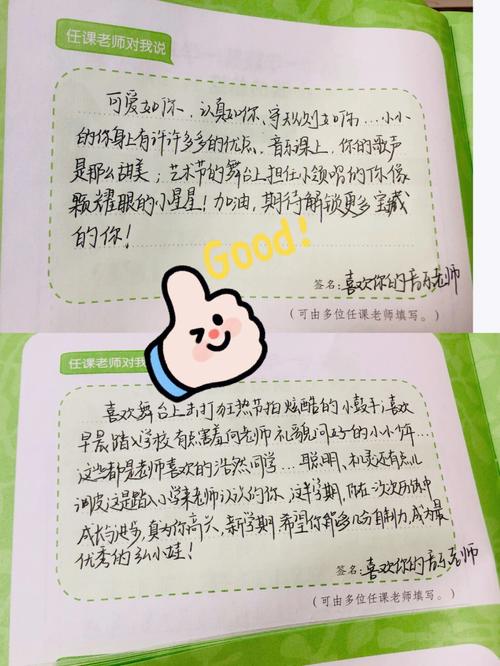 任课老师对我说
可爱如你、认真如你、守规则如你……小小
的你身上有许许多多的优点。音乐课上，你的歌声
是那么甜美；艺术节的舞台上担任小领唱的你像
颗耀眼的小星星！加油，期待解锁更多宝藏
的你！
Good!
签名：喜欢你的音乐老师
（可由多位任课老师填写。）
任课老师对我
喜欢舞台上击打狂热节拍炫酷的小鼓手；喜欢
早晨踏入学校有点害羞向老师礼貌问好的小小少年…
这些都是老师喜欢的浩然同学…聪明、机灵还有点儿
调皮这是踏入小学来老师认识的你，这半学期，你在一次次历练中
成长与进步，真为你高兴，新学期，希望你能够自制力，成为最
优秀的小娃！
签名：喜欢你的音乐老师
（可由多位任课老师填写。）